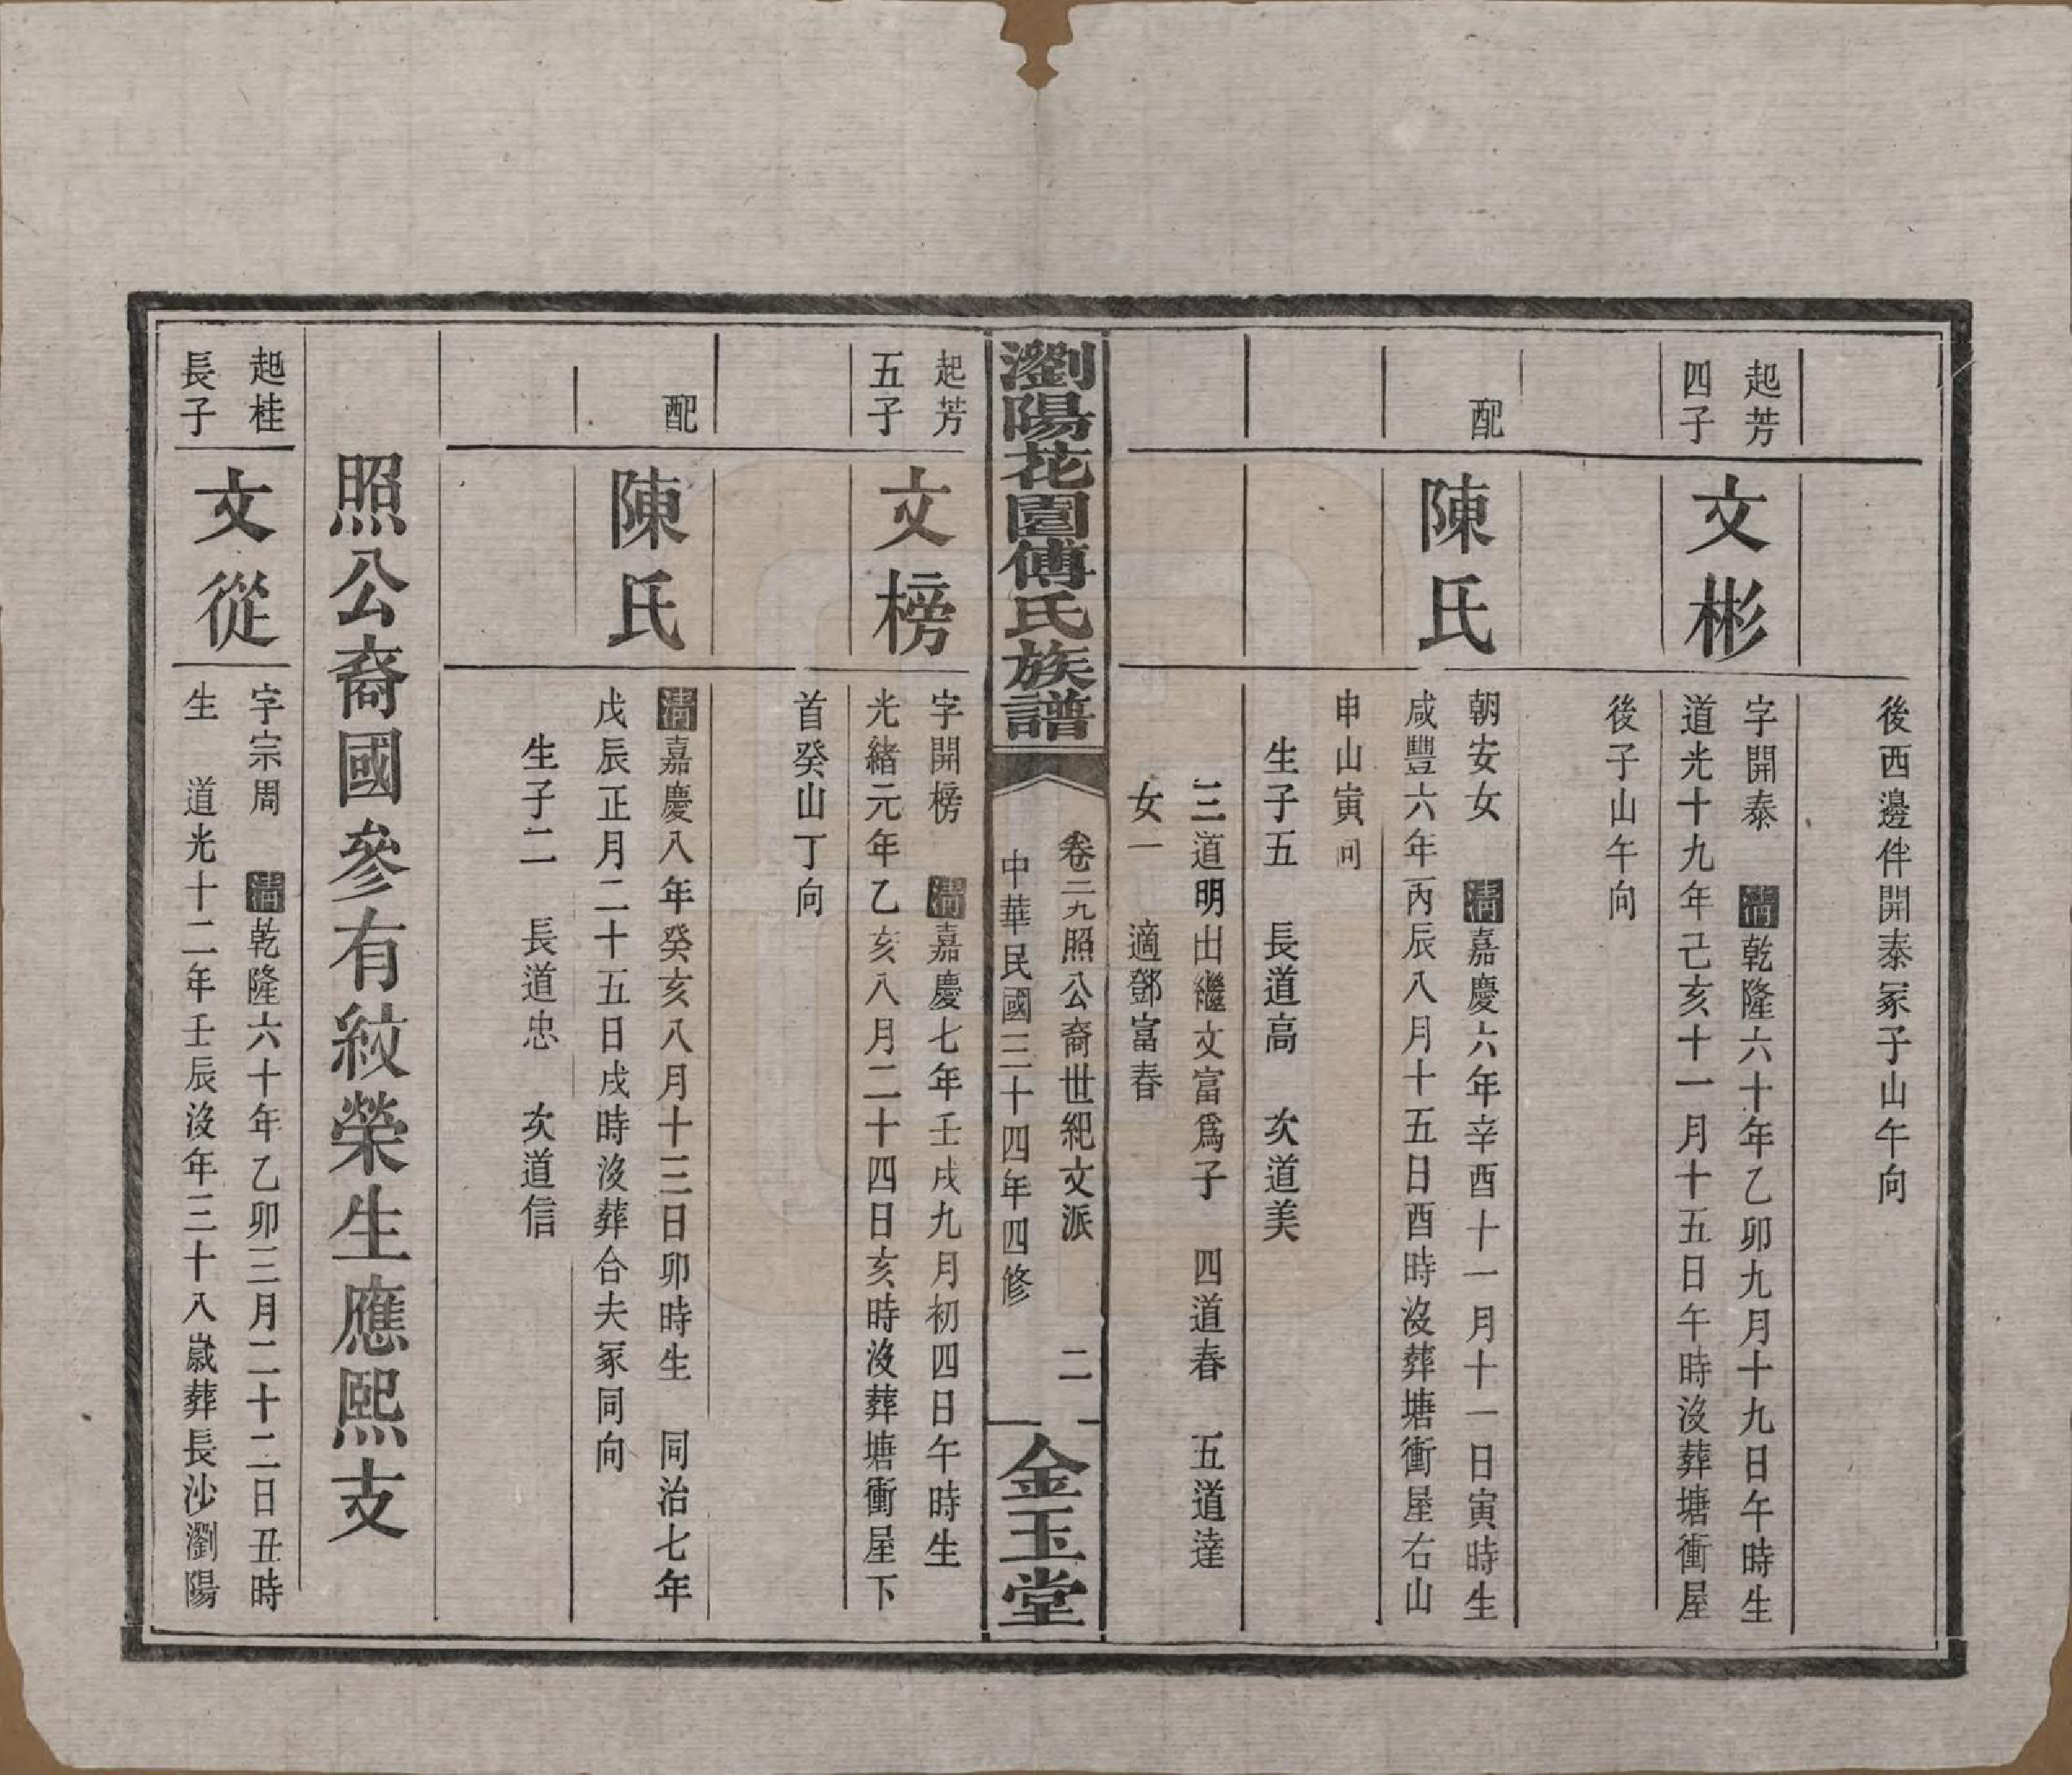 後西邊伴開泰冢子山午向
起芳
四子
文彬
字開泰 清乾隆六十年乙卯九月十九日午時生
道光十九年己亥十一月十五日午時沒葬塘衝屋
後子山午向
配
陳氏
朝安女 清嘉慶六年辛酉十一月十一日寅時生
咸豐六年丙辰八月十五日酉時沒葬塘衝屋右山
申山寅向
生子五 長道高 次道美
三道明出繼文富爲子 四道春 五道達
女一 適鄧富春
瀏陽花園傅氏族譜
卷二九照公裔世紀文派 二
中華民國三十四年四修
金玉堂
起芳
五子
文榜
字開榜 清嘉慶七年壬戌九月初四日午時生
光緒元年乙亥八月二十四日亥時沒葬塘衝屋下
首癸山丁向
配
陳氏
清嘉慶八年癸亥八月十三日卯時生 同治七年
戊辰正月二十五日戌時沒葬合夫冢同向
生子二 長道忠 次道信
照公裔國參有紋榮生應熙支
起桂
長子
文從
字宗周 清乾隆六十年乙卯三月二十二日丑時
生 道光十二年壬辰沒年三十八歲葬長沙瀏陽